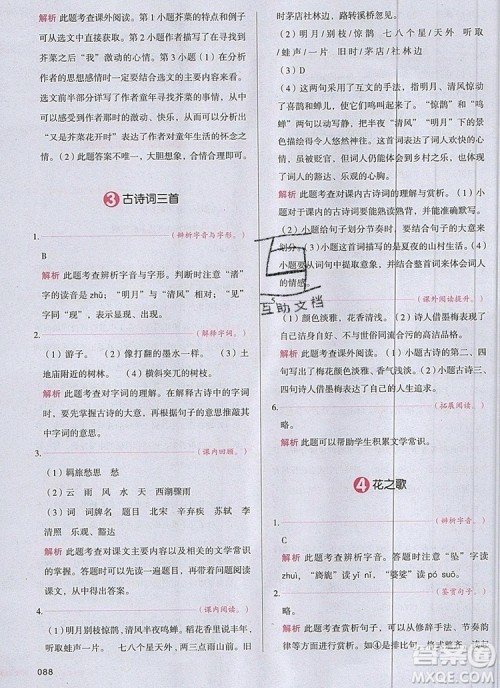 解析 此题考查课外阅读。第 1 小题芥菜的特点和例子
可以从选文中直接获取。第 2 小题作者描写了在吃
芥菜之后“我”激动的心情。第 3 小题（1）在分析
作者的思想感情时一定要联系选文的上下文体会。
选文前半部分详细写了作者童年寻找芥菜的过程
以及芥菜给他带来的激动与快乐，由此可以分析出
“又是芥菜花开时”表达了作者对童年生活的怀念之
情。（2）此题答案不唯一，大胆想象，合情合理即可。
3 古诗词三首
1. （辨析字音与字形。）
B
解析 此题考查辨析字音与字形。判断时注意“渚”
字的读音是 zhǔ；“明月”与“清风”相对；“见”同
“现”，在文中表示出现、显现。
2. （解释字词。）
（1）游子。（2）像打翻的墨水一样。（3）土
地庙附近的树林。（4）横斜突兀的树枝。
解析 此题考查对字词的理解。在解释古诗中的字词
时，要根据古诗的大意，再根据句子的意思分析其
中字词的意思。
3. （课内回顾。）
（1）羁旅愁思 愁
（2）云 雨 风 水 天 西湖骤雨
（3）词 词牌名 题目 北宋 辛弃疾 苏轼 李
清照 乐观、豁达
解析 此题考查对课文主要内容的概括及文学常识
的掌握。答题时要结合平时对古诗内容的理解，在
诗中直接找出答案。
4. （课内阅读。）
（1）明月别枝惊鹊，清风半夜鸣蝉。稻花香里说丰
年，听取蛙声一片。七八个星天外，两三点雨山前。旧
088
时茅店社林边，路转溪桥忽见。
（2）惊鹊 / 清风 七八个星 / 天外 听取 /
蛙声 / 一片 旧时 / 茅店 / 社林边
（3）D
（4）这两句采用了互文的手法，明月、清风惊动
了喜鹊和蝉儿，使它们鸣叫起来。“惊鹊”和“鸣
蝉”两句动中寓静，把半夜“清风”“明月”下的
景色描写得令人悠然神往，表现了词人闲适的心
情。虽然仍然心忧社稷，但能寄心于乡村之乐，也
体现了词人开朗、乐观的心境。
解析 此题考查对课内古诗词的理解与赏析。第（2）
小题注意在给句子划分节奏时，要根据词句的大意来
划分。（3）小题这首词描写的是夏夜的山村生活。（4）
小题要从词句中提取意象，并根据意象来体会词人
的情感。
5. （课外阅读提升。）
（1）颜色淡雅，花香清浅。（2）诗人借墨梅表达了
自己不愿与世俗同流合污的高洁品格。
解析 此题考查课外阅读。（1）小题古诗的第二、四
句描写了梅花颜色淡雅、香气浅淡。（2）小题第三、
四句诗人借墨梅表达了自己的人生追求。
6. （拓展阅读。）
略。
解析 此题可以帮助学生积累文学常识。
4 花之歌
1. （辨析字音。）
B
解析 此题考查辨析字音。注意“坠”字读
zhuì，“旖旎”读 yǐ nǐ，“婆娑”读 pó suō。
2. （鉴赏句子。）
略。
解析 此题考查赏析句子，可以从修辞手法、关联
词、体会等方面来写。如④是排比句，格式整齐、读
互助文档